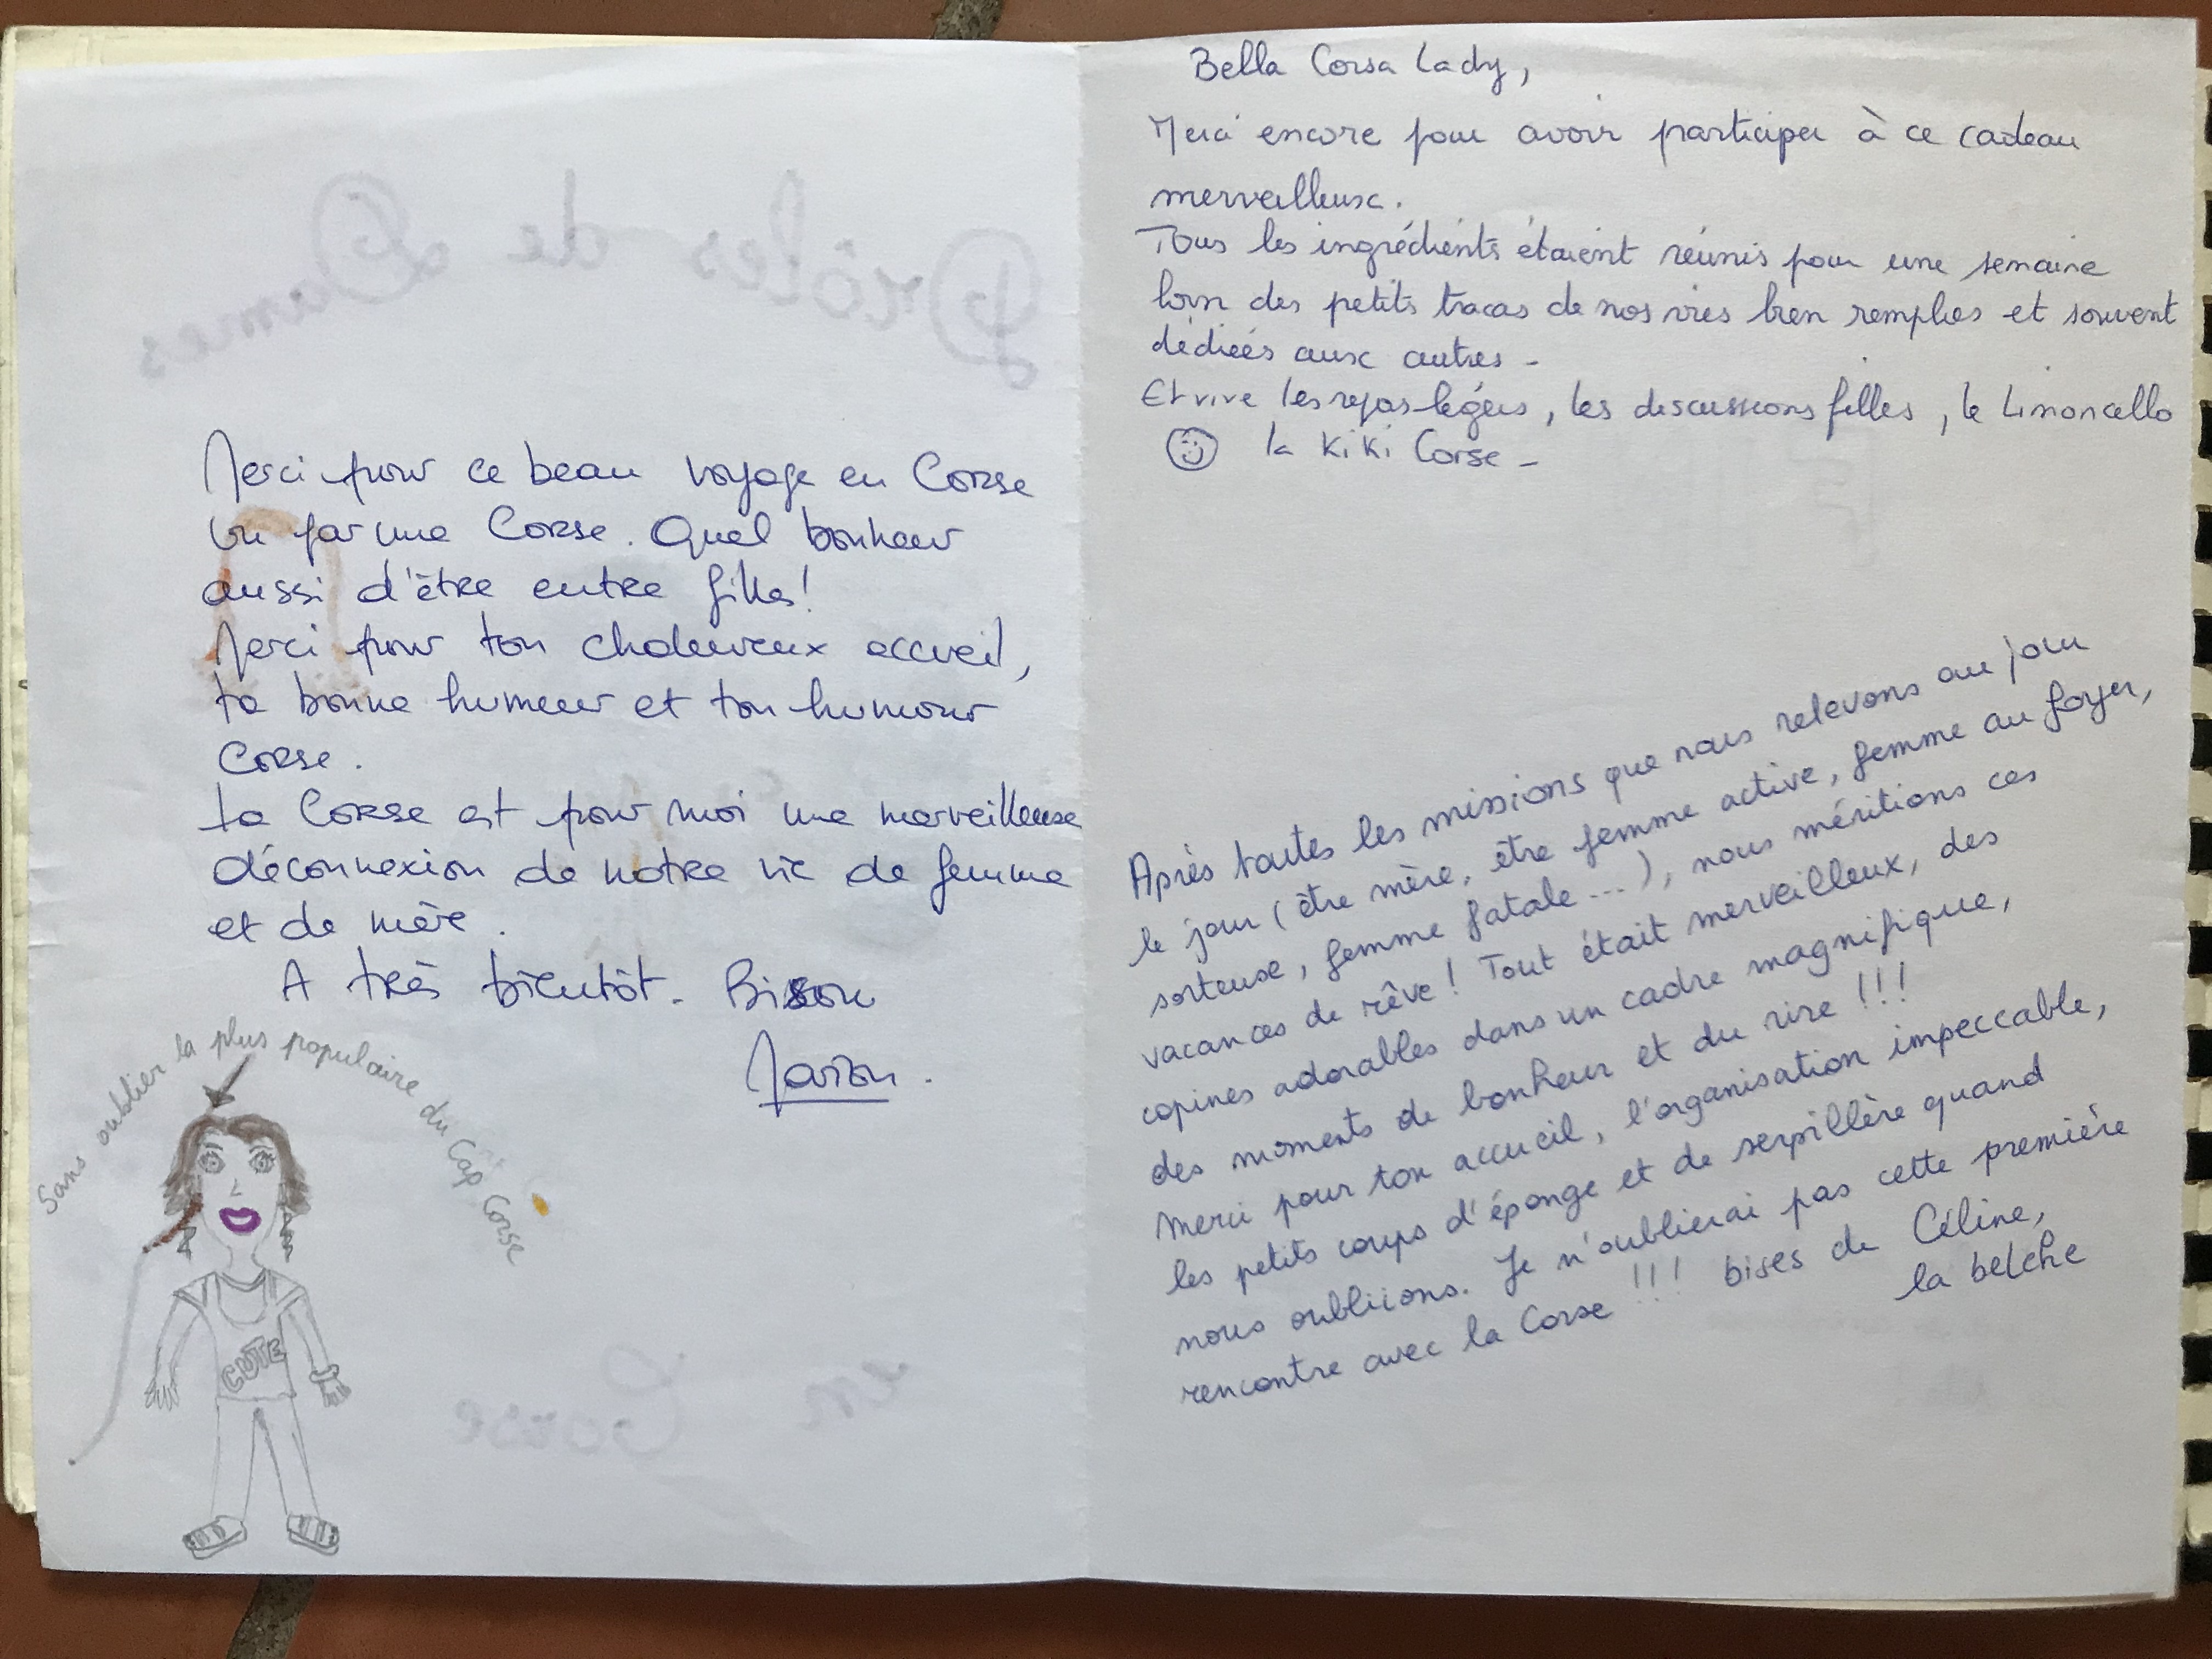 Merci pour ce beau voyage en Corse
vu par une Corse. Quel bonheur
aussi d'être entre filles!
Merci pour ton chaleureux accueil,
ta bonne humeur et ton humour
Corse.
La Corse est pour moi une merveilleuse
déconnexion de notre vie de femme
et de mère.
A très bientôt.
Marion.
Sans oublier la plus populaire du Cap Corse
CUTE
Drôles de Dames
en Corse
Bella Corsa Lady,
Merci encore pour avoir participer à ce cadeau
merveilleux.
Tous les ingrédients étaient réunis pour une semaine
loin des petits tracas de nos vies bien remplies et souvent
dédiées aux autres -
Et vive les repas légers, les discussions filles, le Limoncello
la Kiki Corse -
Après toutes les missions que nous relevons au jour
le jour (être mère, être femme active, femme au foyer,
sorteuse, femme fatale...), nous méritions ces
vacances de rêve! Tout était merveilleux, des
copines adorables dans un cadre magnifique,
des moments de bonheur et du rire !!!
Merci pour ton accueil, l'organisation impeccable,
les petits coups d'éponge et de serpillère quand
nous oubliions. Je n'oublierai pas cette première
rencontre avec la Corse !!! bises de Céline,
la belche